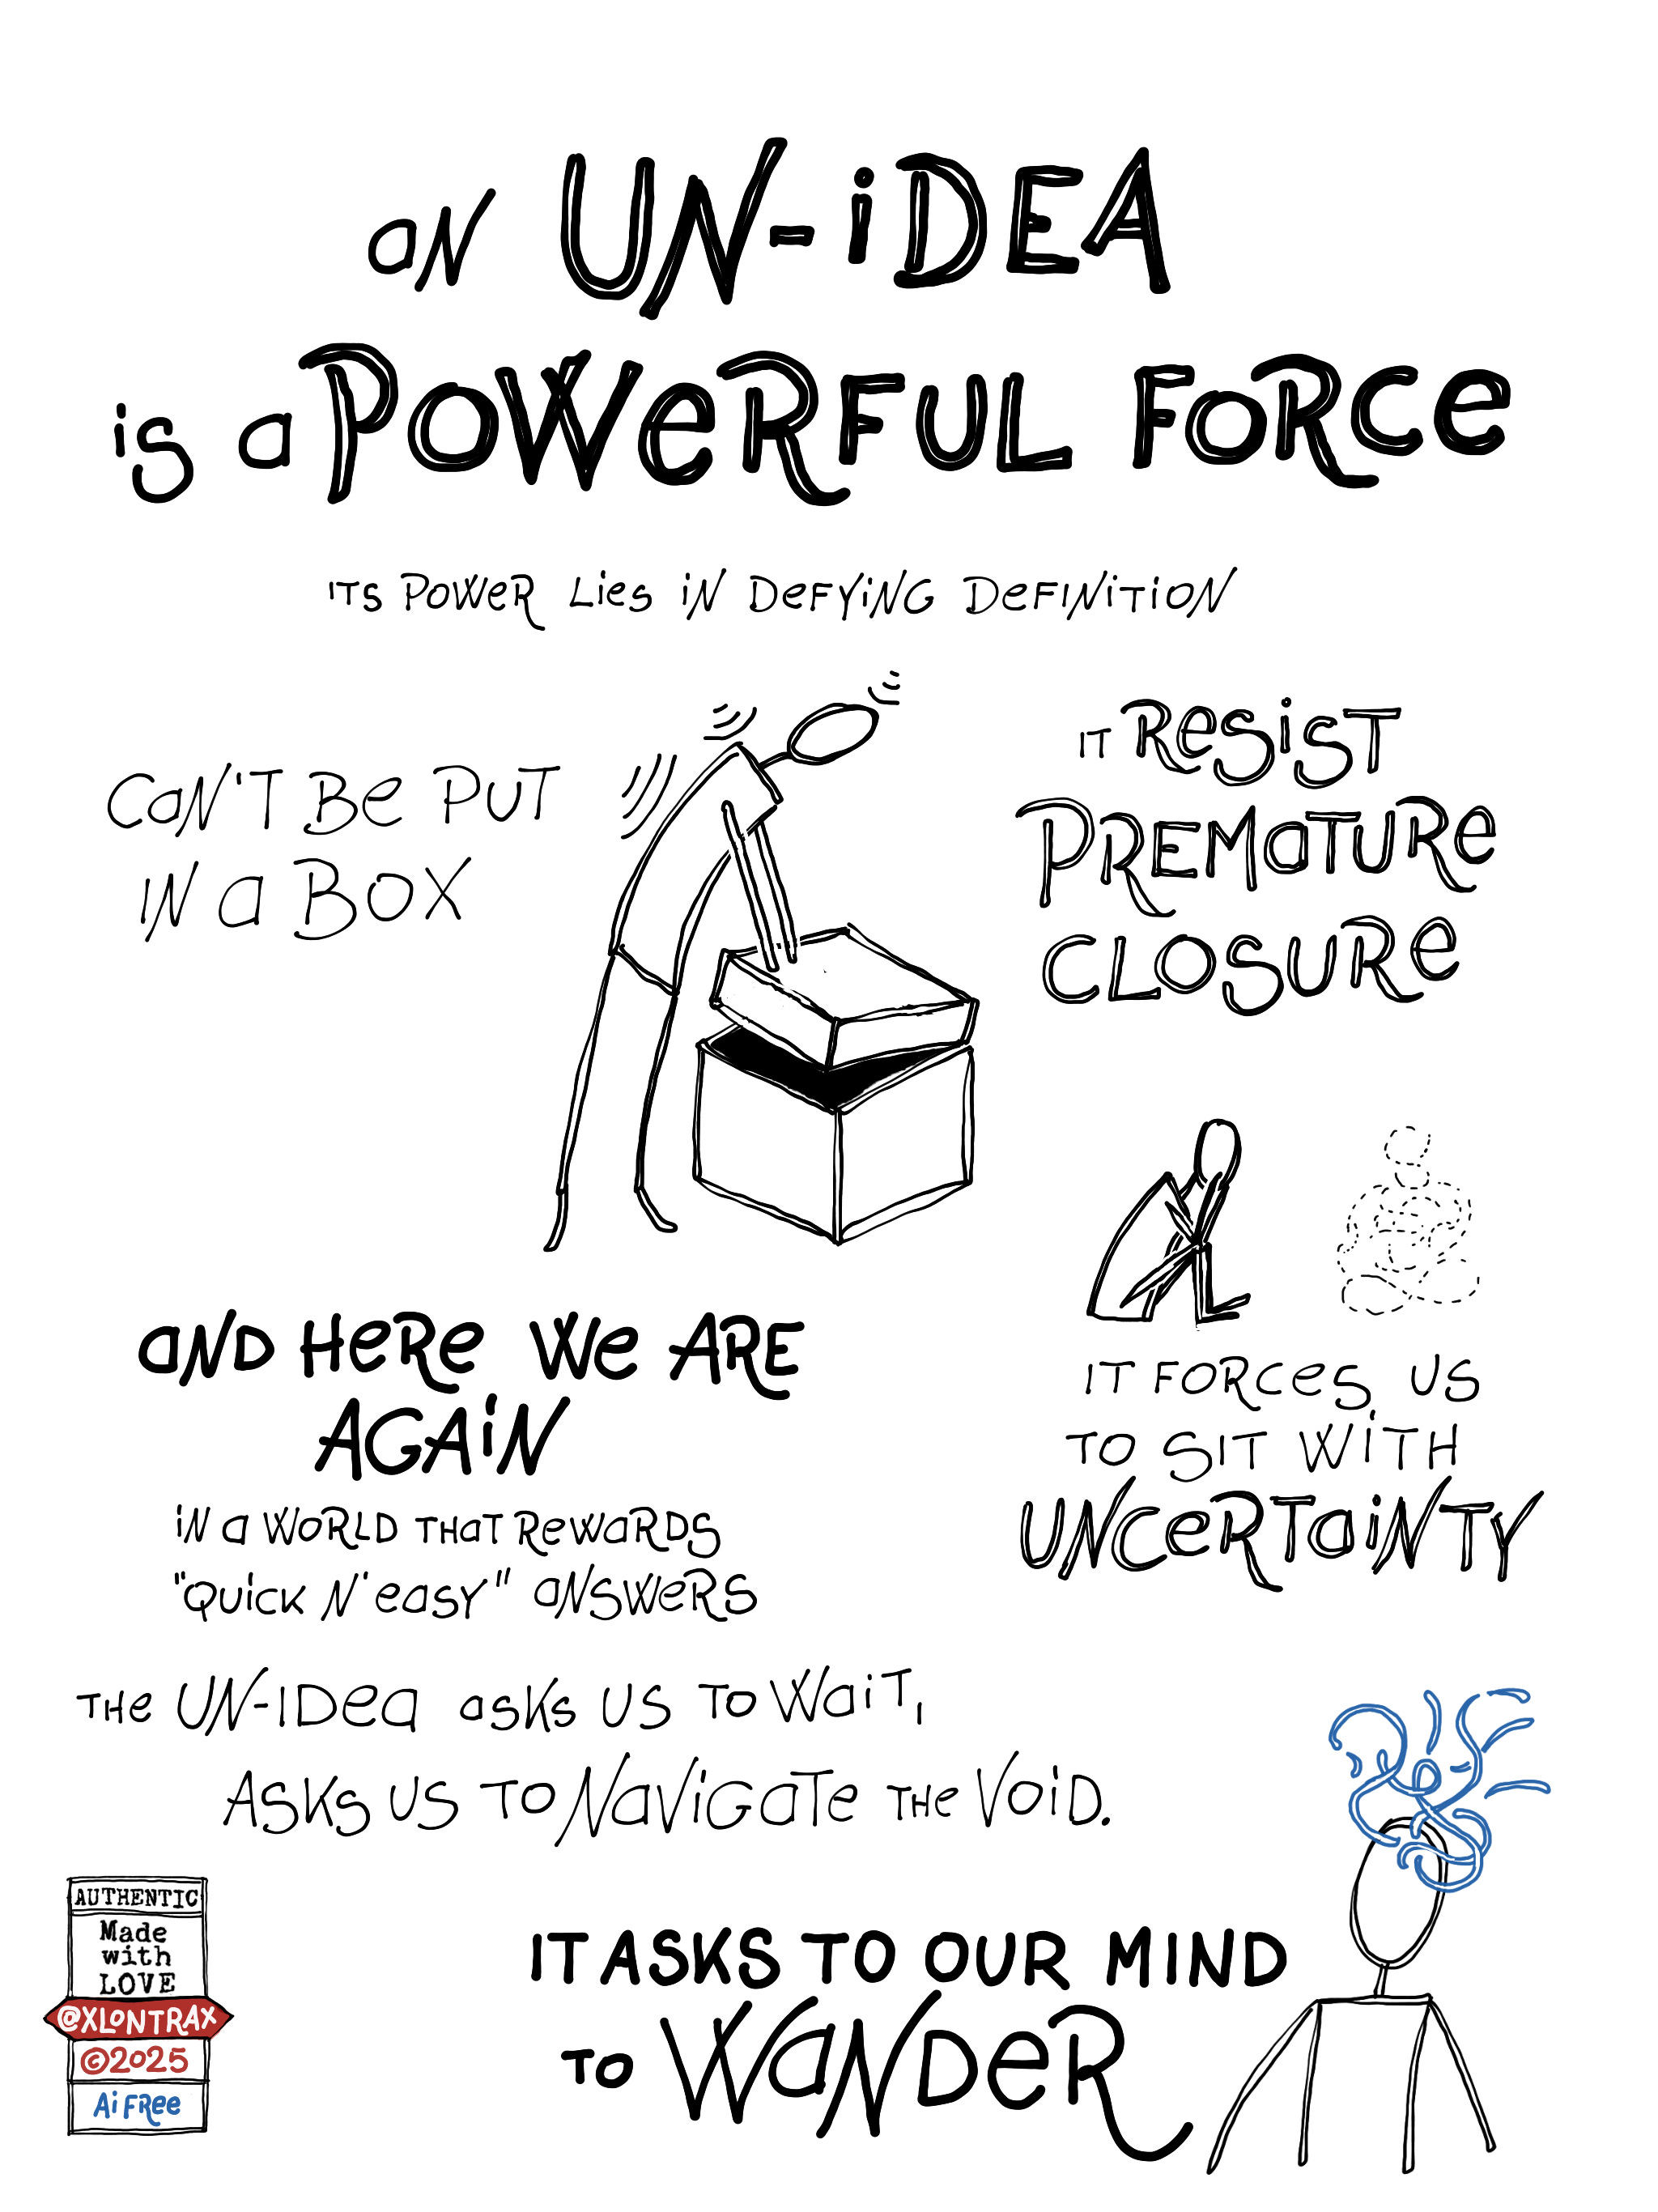 aN UN-iDEA
is a POWeRFUL FORCe
ITS POWeR Lies iN DeFYiNG DeFINiTiON
CaN'T Be PUT
IN a BOX
IT ResisT
PREMaTURe
CLOSURe
aND HeRe We ARE
AGAiN
iN a WORLD THaT ReWaRDS
"QUicK N' easy" aNSWeRS
IT FORCes US
TO SIT WiTH
UNCeRTaiNTY
THe UN-IDea asKs US TO WaiT,
ASKs US TO NaViGaTe THe VOiD.
IT ASKS TO OUR MIND
TO WaNDeR
AUTHENTIC
Made
with
LOVE
@XLONTRAX
©2025
Ai FRee